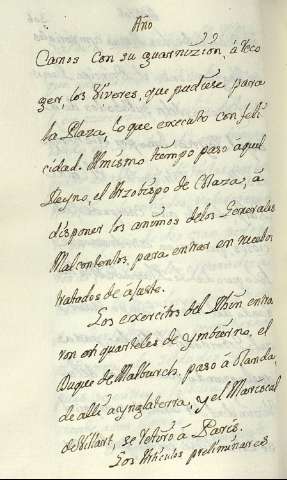 Año
Camos con su guarnizión, á reco
ger, los Víveres, que pudiese para
la Plaza, lo que executo con feli
cidad. Al mismo tiempo pasó áquel
Reyno, el Arzobispo de Colaza, á
disponer los animos delos Generales
Malcontentos, para entrar en nuebos
tratados de ájuste.
Los exercitos del Rhin, entra
ron en quarteles de ymbierno, el
Duque de Malburch, pasó á Olanda,
de alli aynglaterra, y el Mariscal
de Villars, se retiró á Paris.
Los Articulos preliminares